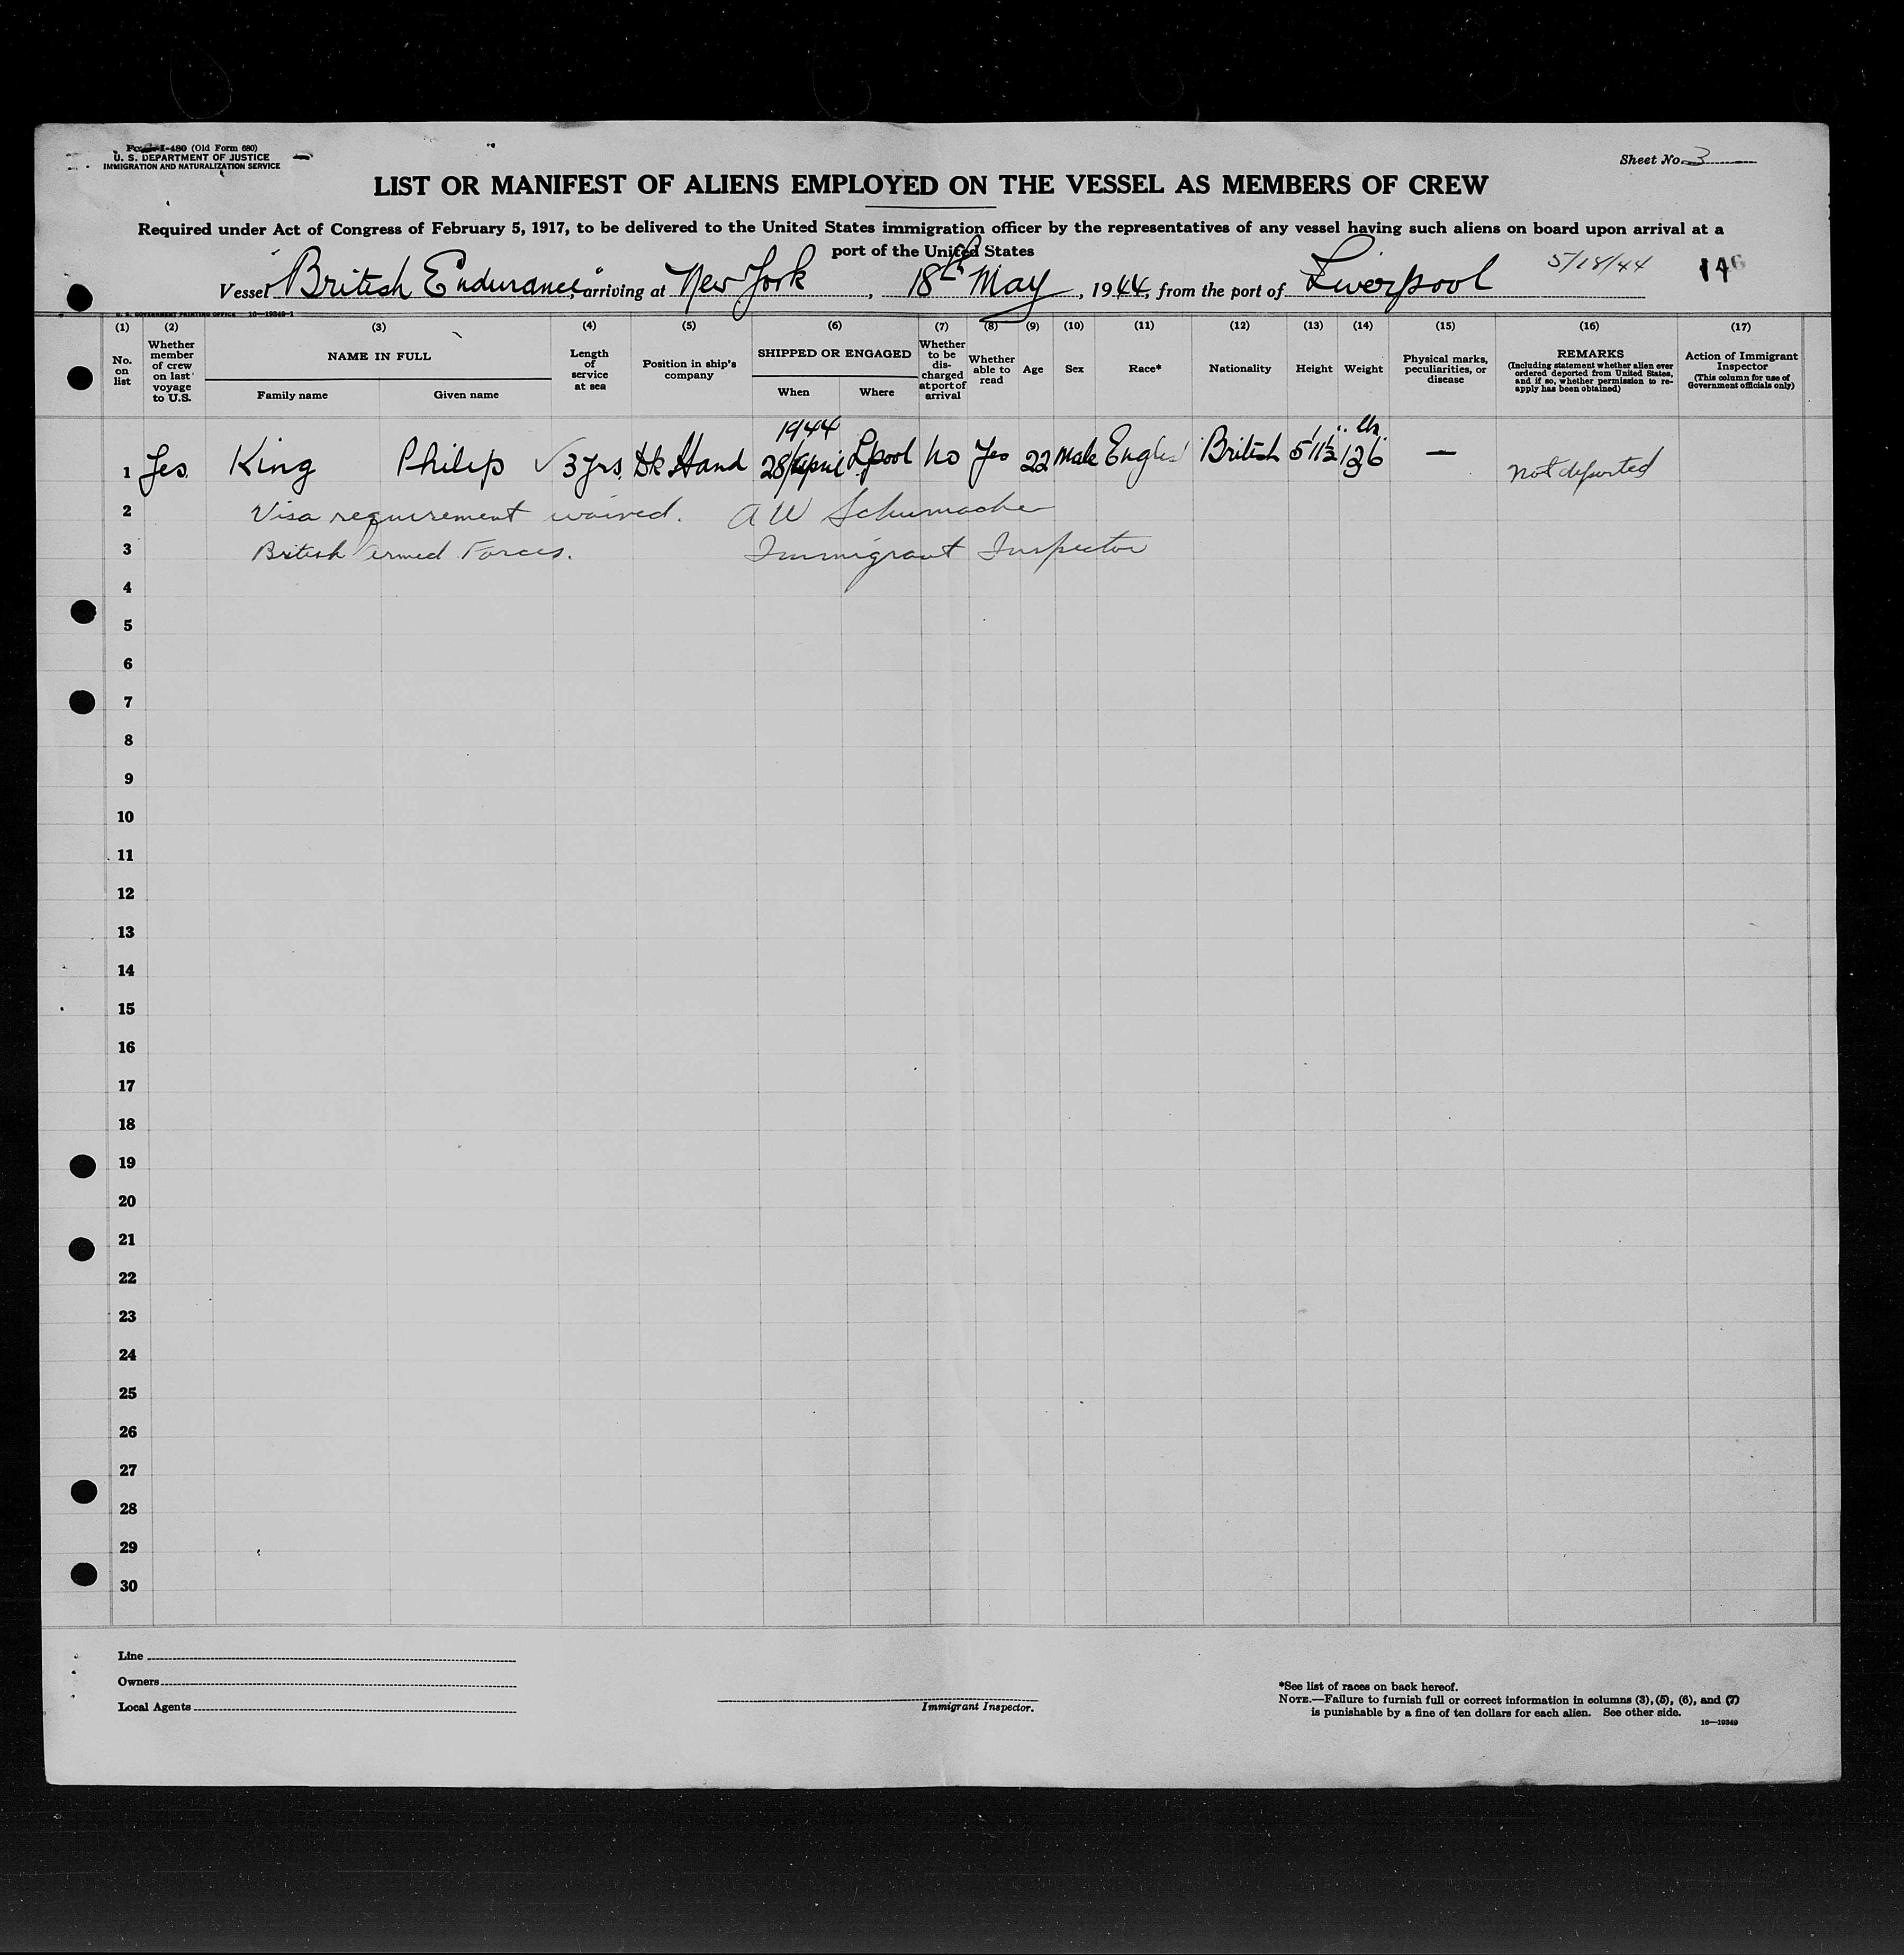 Form I-480 (Old Form 680)
U. S. DEPARTMENT OF JUSTICE
IMMIGRATION AND NATURALIZATION SERVICE
Sheet No. 3
LIST OR MANIFEST OF ALIENS EMPLOYED ON THE VESSEL AS MEMBERS OF CREW
Required under Act of Congress of February 5, 1917, to be delivered to the United States immigration officer by the representatives of any vessel having such aliens on board upon arrival at a
port of the United States
5/18/44 146
Vessel "British Endurance", arriving at New York, 18th May, 1944, from the port of Liverpool
U. S. GOVERNMENT PRINTING OFFICE 16—19349-1
(1) (2) (3) (4) (5) (6) (7) (8) (9) (10) (11) (12) (13) (14) (15) (16) (17)
No. on list
Whether member of crew on last voyage to U.S.
NAME IN FULL
Family name Given name
Length of service at sea
Position in ship's company
SHIPPED OR ENGAGED
When Where
Whether to be discharged at port of arrival
Whether able to read
Age
Sex
Race*
Nationality
Height
Weight
Physical marks, peculiarities, or disease
REMARKS
(Including statement whether alien ever ordered deported from United States, and if so, whether permission to reapply has been obtained)
Action of Immigrant Inspector
(This column for use of Government officials only)
1944 lbs.
1 Yes. King Philip ✓ 3 yrs. Dk Hand 28/April L'pool No Yes 22 Male English British 5' 11½" 136 — Not deported
2 Visa requirement waived. A W Schumacher
3 British Armed Forces. Immigrant Inspector
4
5
6
7
8
9
10
11
12
13
14
15
16
17
18
19
20
21
22
23
24
25
26
27
28
29
30
Line
Owners
Local Agents
Immigrant Inspector.
*See list of races on back hereof.
NOTE.—Failure to furnish full or correct information in columns (3), (5), (6), and (7)
is punishable by a fine of ten dollars for each alien. See other side.
16—19349